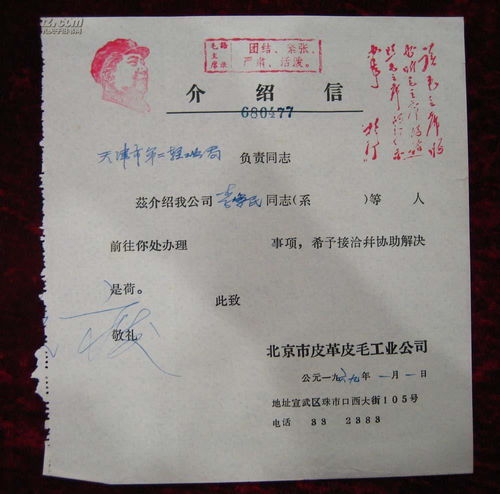 毛主席语录
团结、紧张、
严肃、活泼。
介绍信
680477
读毛主席的书
听毛主席的话
照毛主席的指示
办事
林彪
天津市第二轻工业局 负责同志
兹介绍我公司 同志(系 )等 人
前往你处办理 事项，希予接洽幷协助解决
是荷。
此致
敬礼
北京市皮革皮毛工业公司
公元一九六九年一月一日
地址宣武区珠市口西大街105号
电话 33 2383